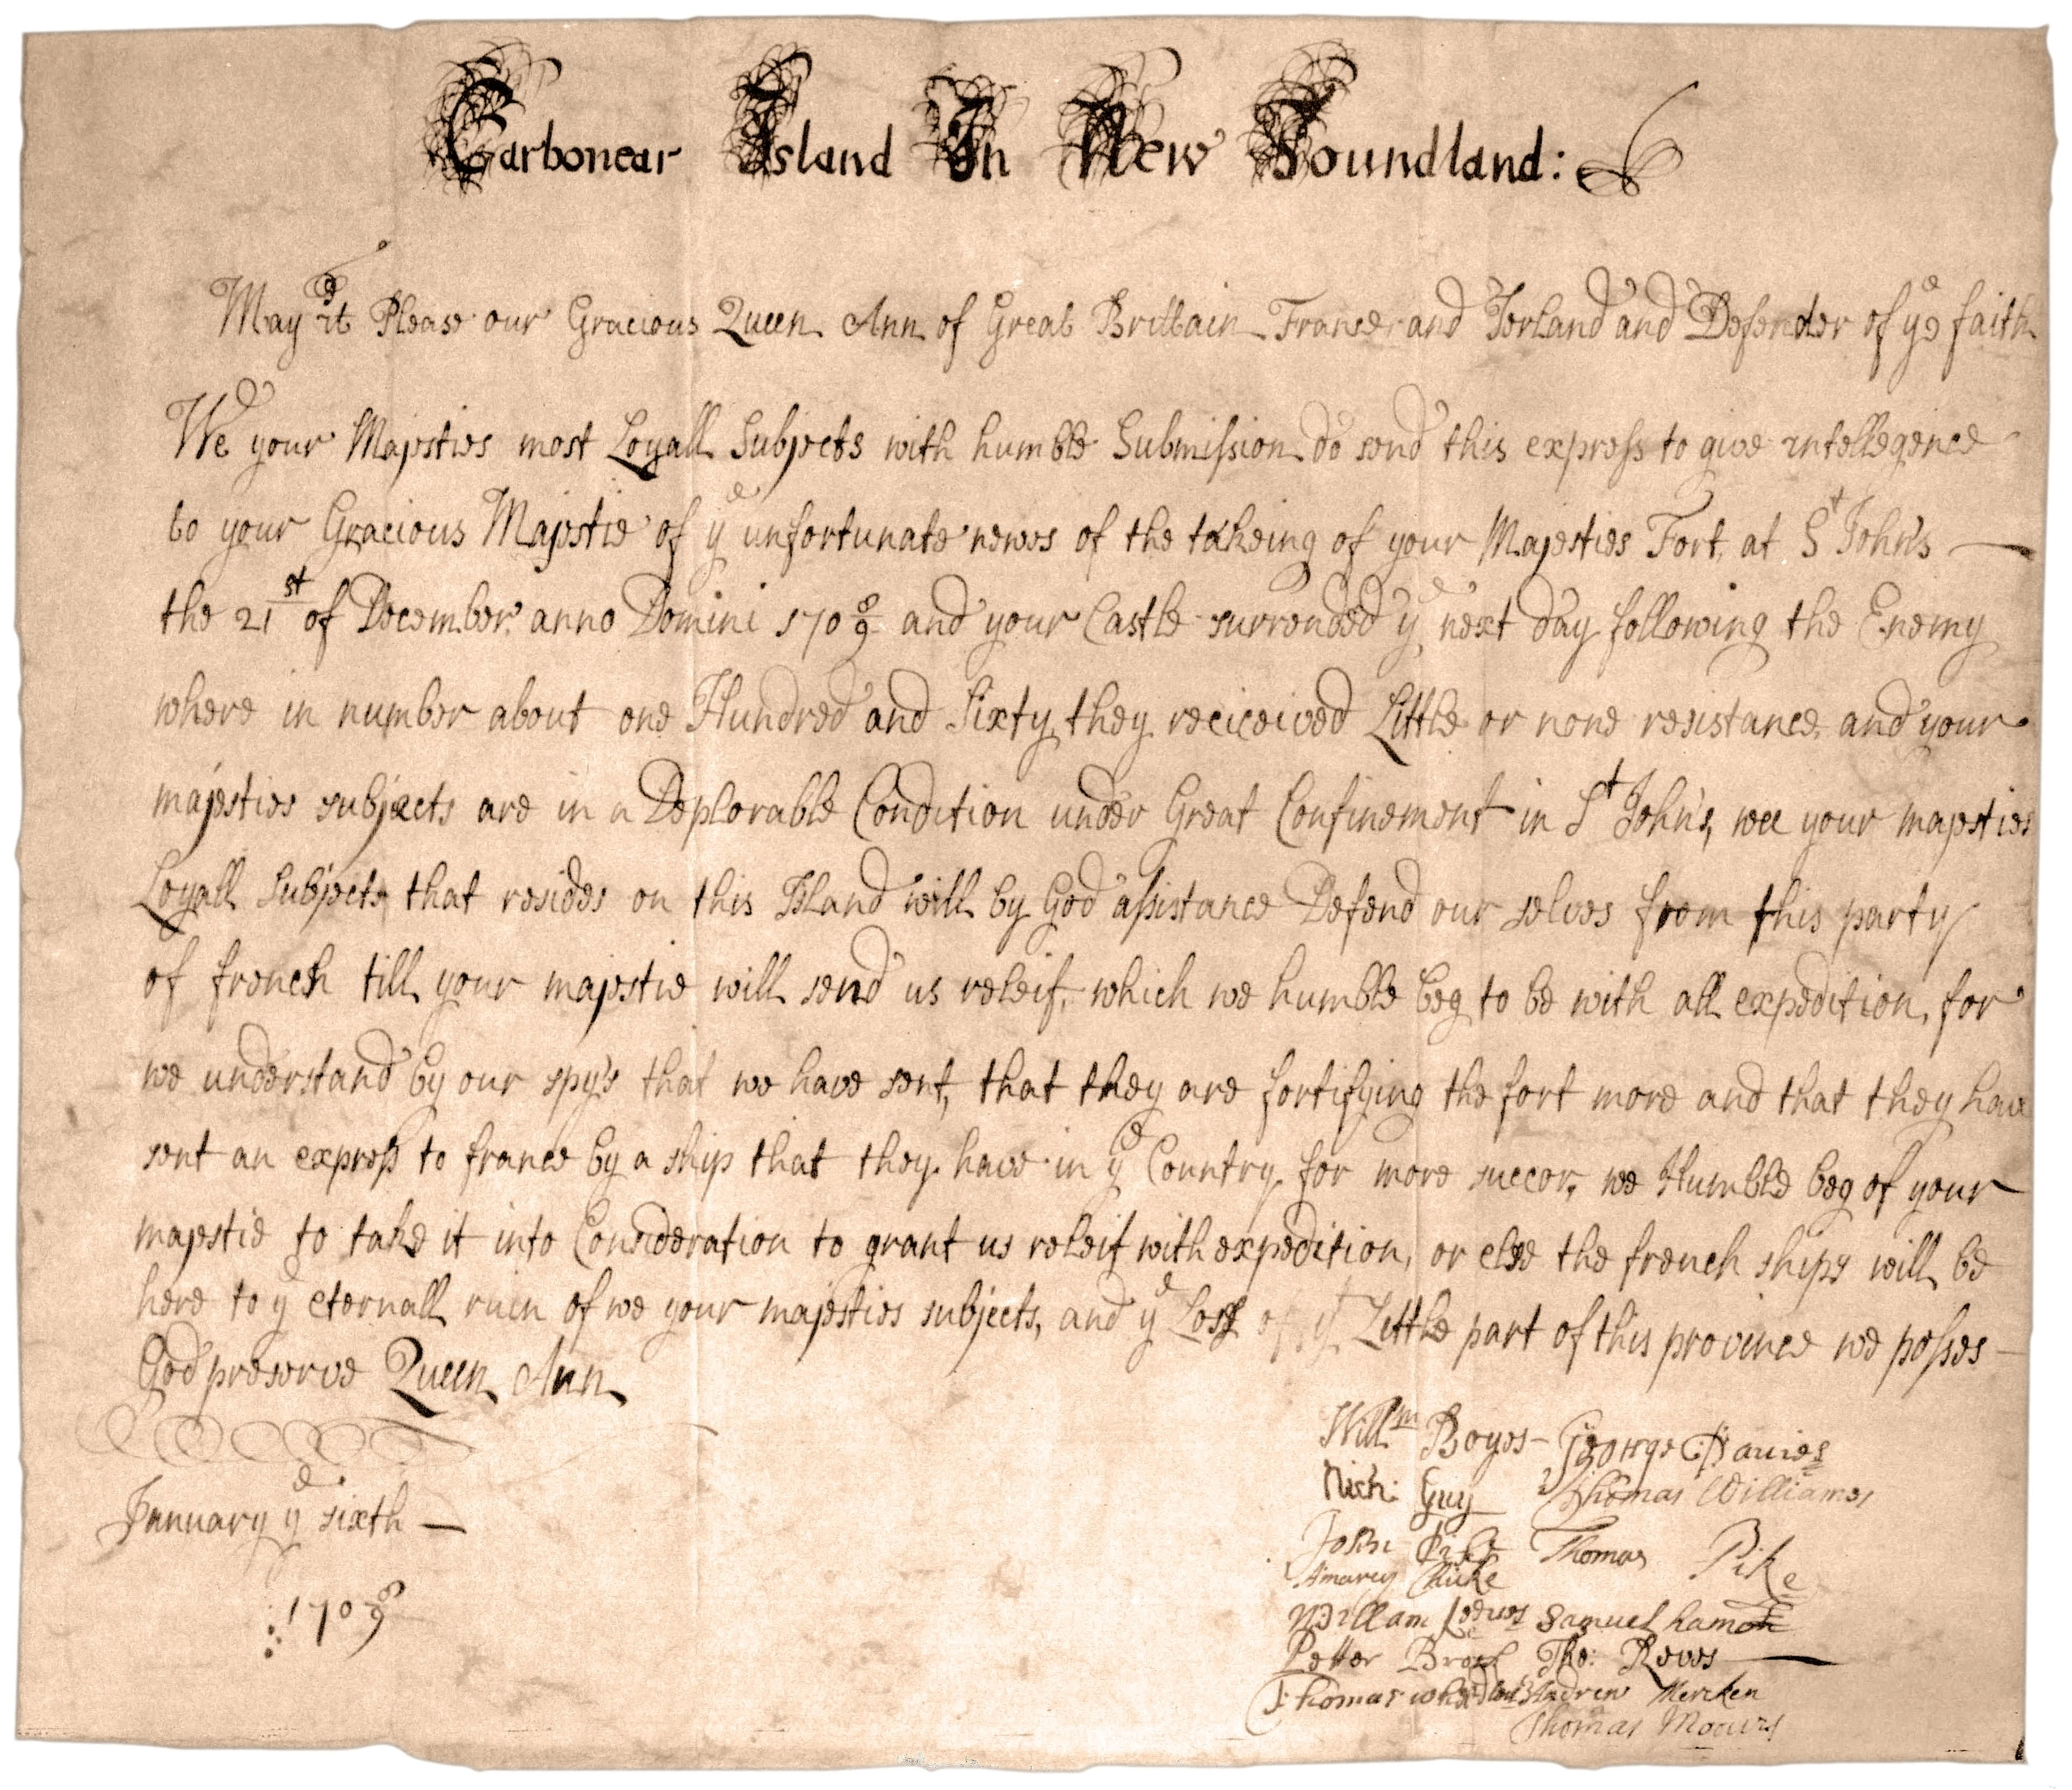 Carbonear Island In New Foundland:
May it Please our Gracious Queen Ann of Great Brittain France and Ierland and Defender of ye faith
We your Majesties most Loyall Subjects with humble Submission do send this express to give intellegence
to your Gracious Majestie of ye unfortunate newes of the takeing of your Majesties Fort at St John's
the 21st of December anno Domini 170 8/9 and your Castle surrended ye next day following the Enemy
where in number about one Hundred and Sixty they reciceived Little or none resistance and your
majesties subjects are in a Deplorable Condition under Great Confinement in St John's, wee your majesties
Loyall Subjects that resides on this Island will by God assistance Defend our selves from this party
of french till your majestie will send us releif, which we humble beg to be with all expedition, for
we understand by our spy's that we have sent, that they are fortifying the fort more and that they have
sent an express to france by a ship that they have in ye Country for more succor, we Humble beg of your
majestie to take it into Consideration to grant us releif with expedition, or else the french ships will be
here to ye eternall ruin of we your majesties subjects, and ye Loss of yt Little part of this province we posses
God preserve Queen Ann
January ye sixth
170 8/9
Willm Boyes George Davies
Nich: Guy Thomas Williames
John Thomas Pike
William Samuel
Petter Tho: Rewes
Thomas Andrew Mercken
Thomas Moours